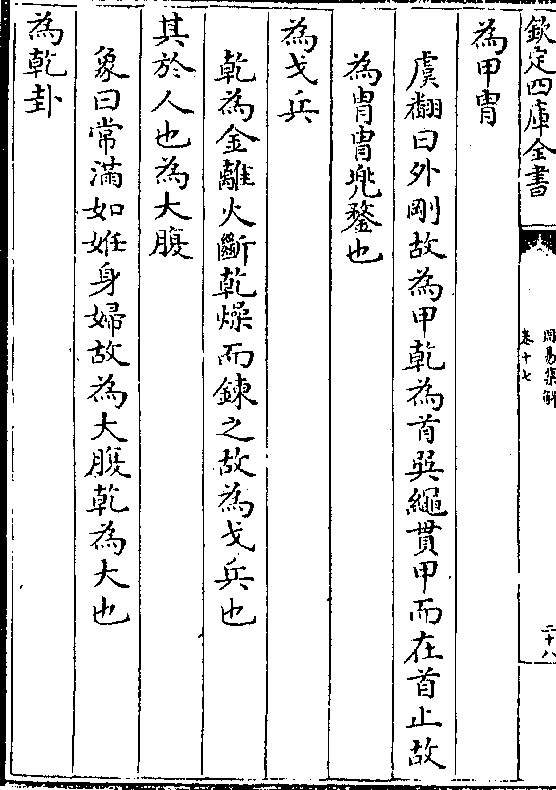 欽定四庫全書
周易集解
卷十七
二十八
為甲胄
虞翻曰外剛故為甲乾為首巽繩貫甲而在首止故
為胄胄兜鍪也
為戈兵
乾為金離火斷乾燥而鍊之故為戈兵也
其於人也為大腹
象曰常滿如姙身婦故為大腹乾為大也
為乾卦